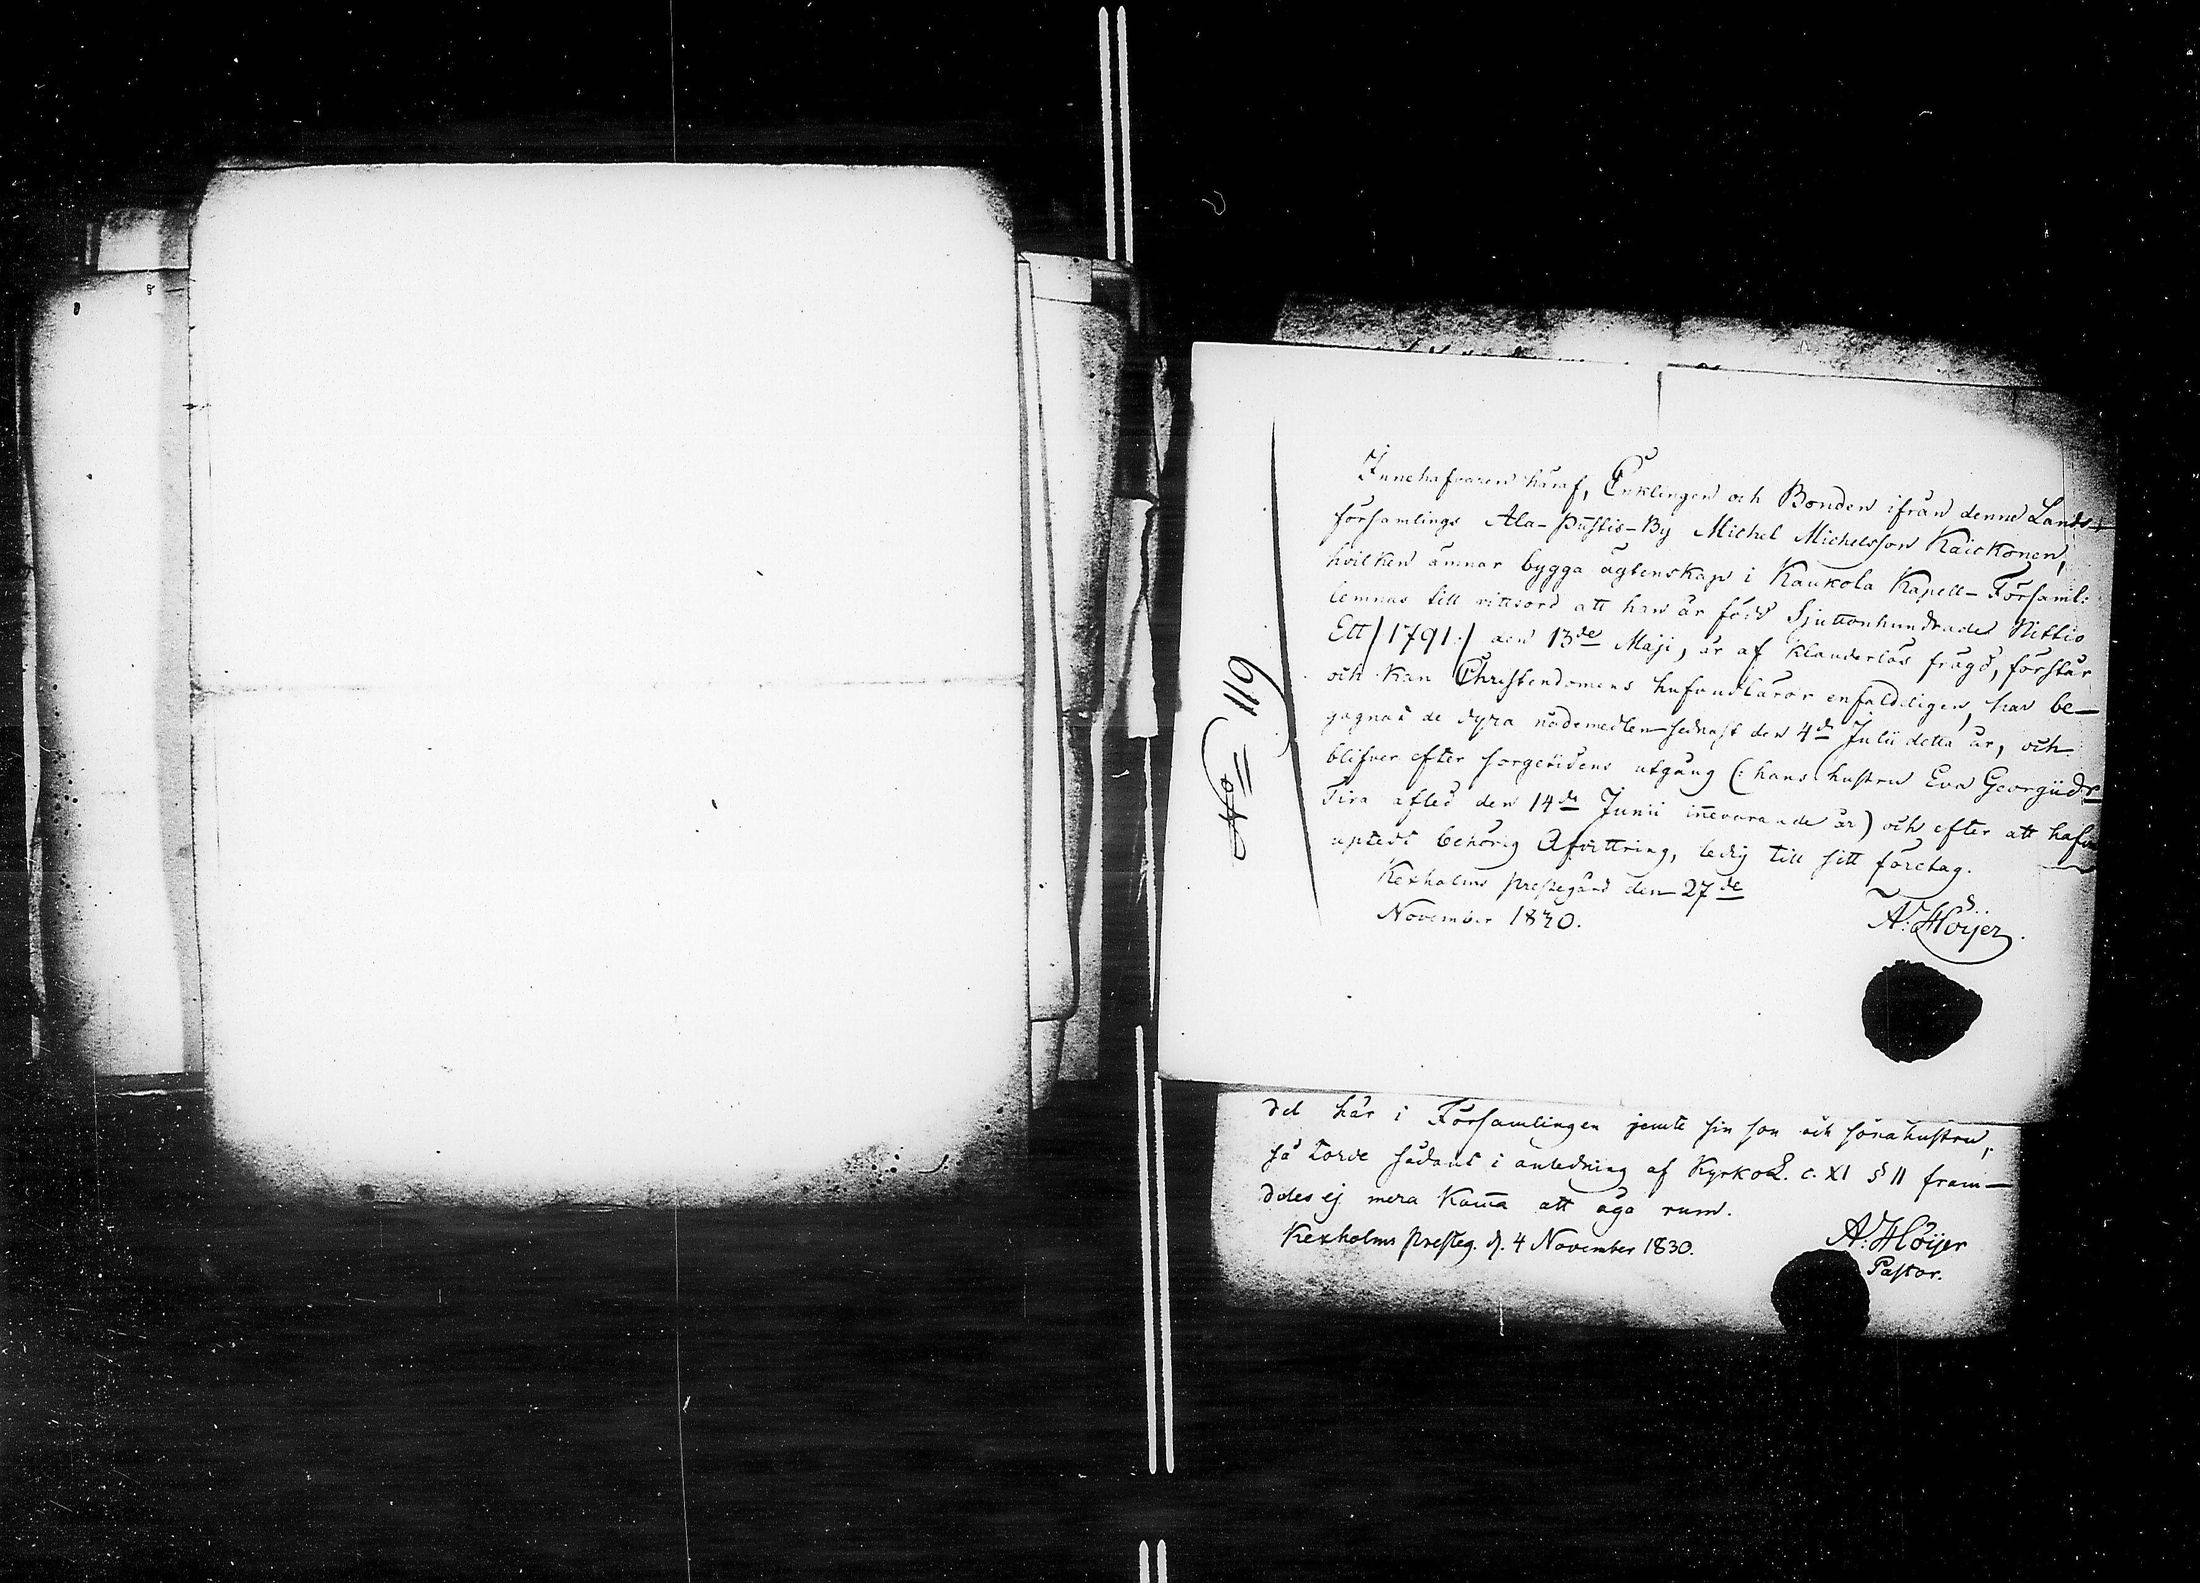 No 119
Innehafvaren häraf, Enklingen och Bonden ifrån denne Lands-
församlings Ala-Pustis-By Michel Michelsson Kaickonen,
hvilken ämnar bygga ägtenskap i Kaukola Kapell-Församl:
lemnas till vittsord att han är född Sjuttonhundrade Nittio
Ett /1791:/ den 13de Maji, är af klanderlös frägd, förstår
och kan Christendomens hufvudläror enfaldeligen, har be-
gagnat de dyra nådemedlen sednast den 4de Julii detta år, och
blifver efter sorgetidens utgång (: hans hustru Eva Georgiidr
Tira afled den 14de Junii innevarande år) och efter att hafva
uptedt behörig Afvittring, ledig till sitt företag.
Kexholms prestegård den 27de
November 1830.
A: Höijer.
del här i Församlingen jemte sin son och sonahustru,
så torde sådant i anledning af KyrkoL. c. XI § 11 fram-
deles ej mera komma att äga rum.
Kexholms presteg. d. 4 November 1830.
A: Höijer
Pastor.